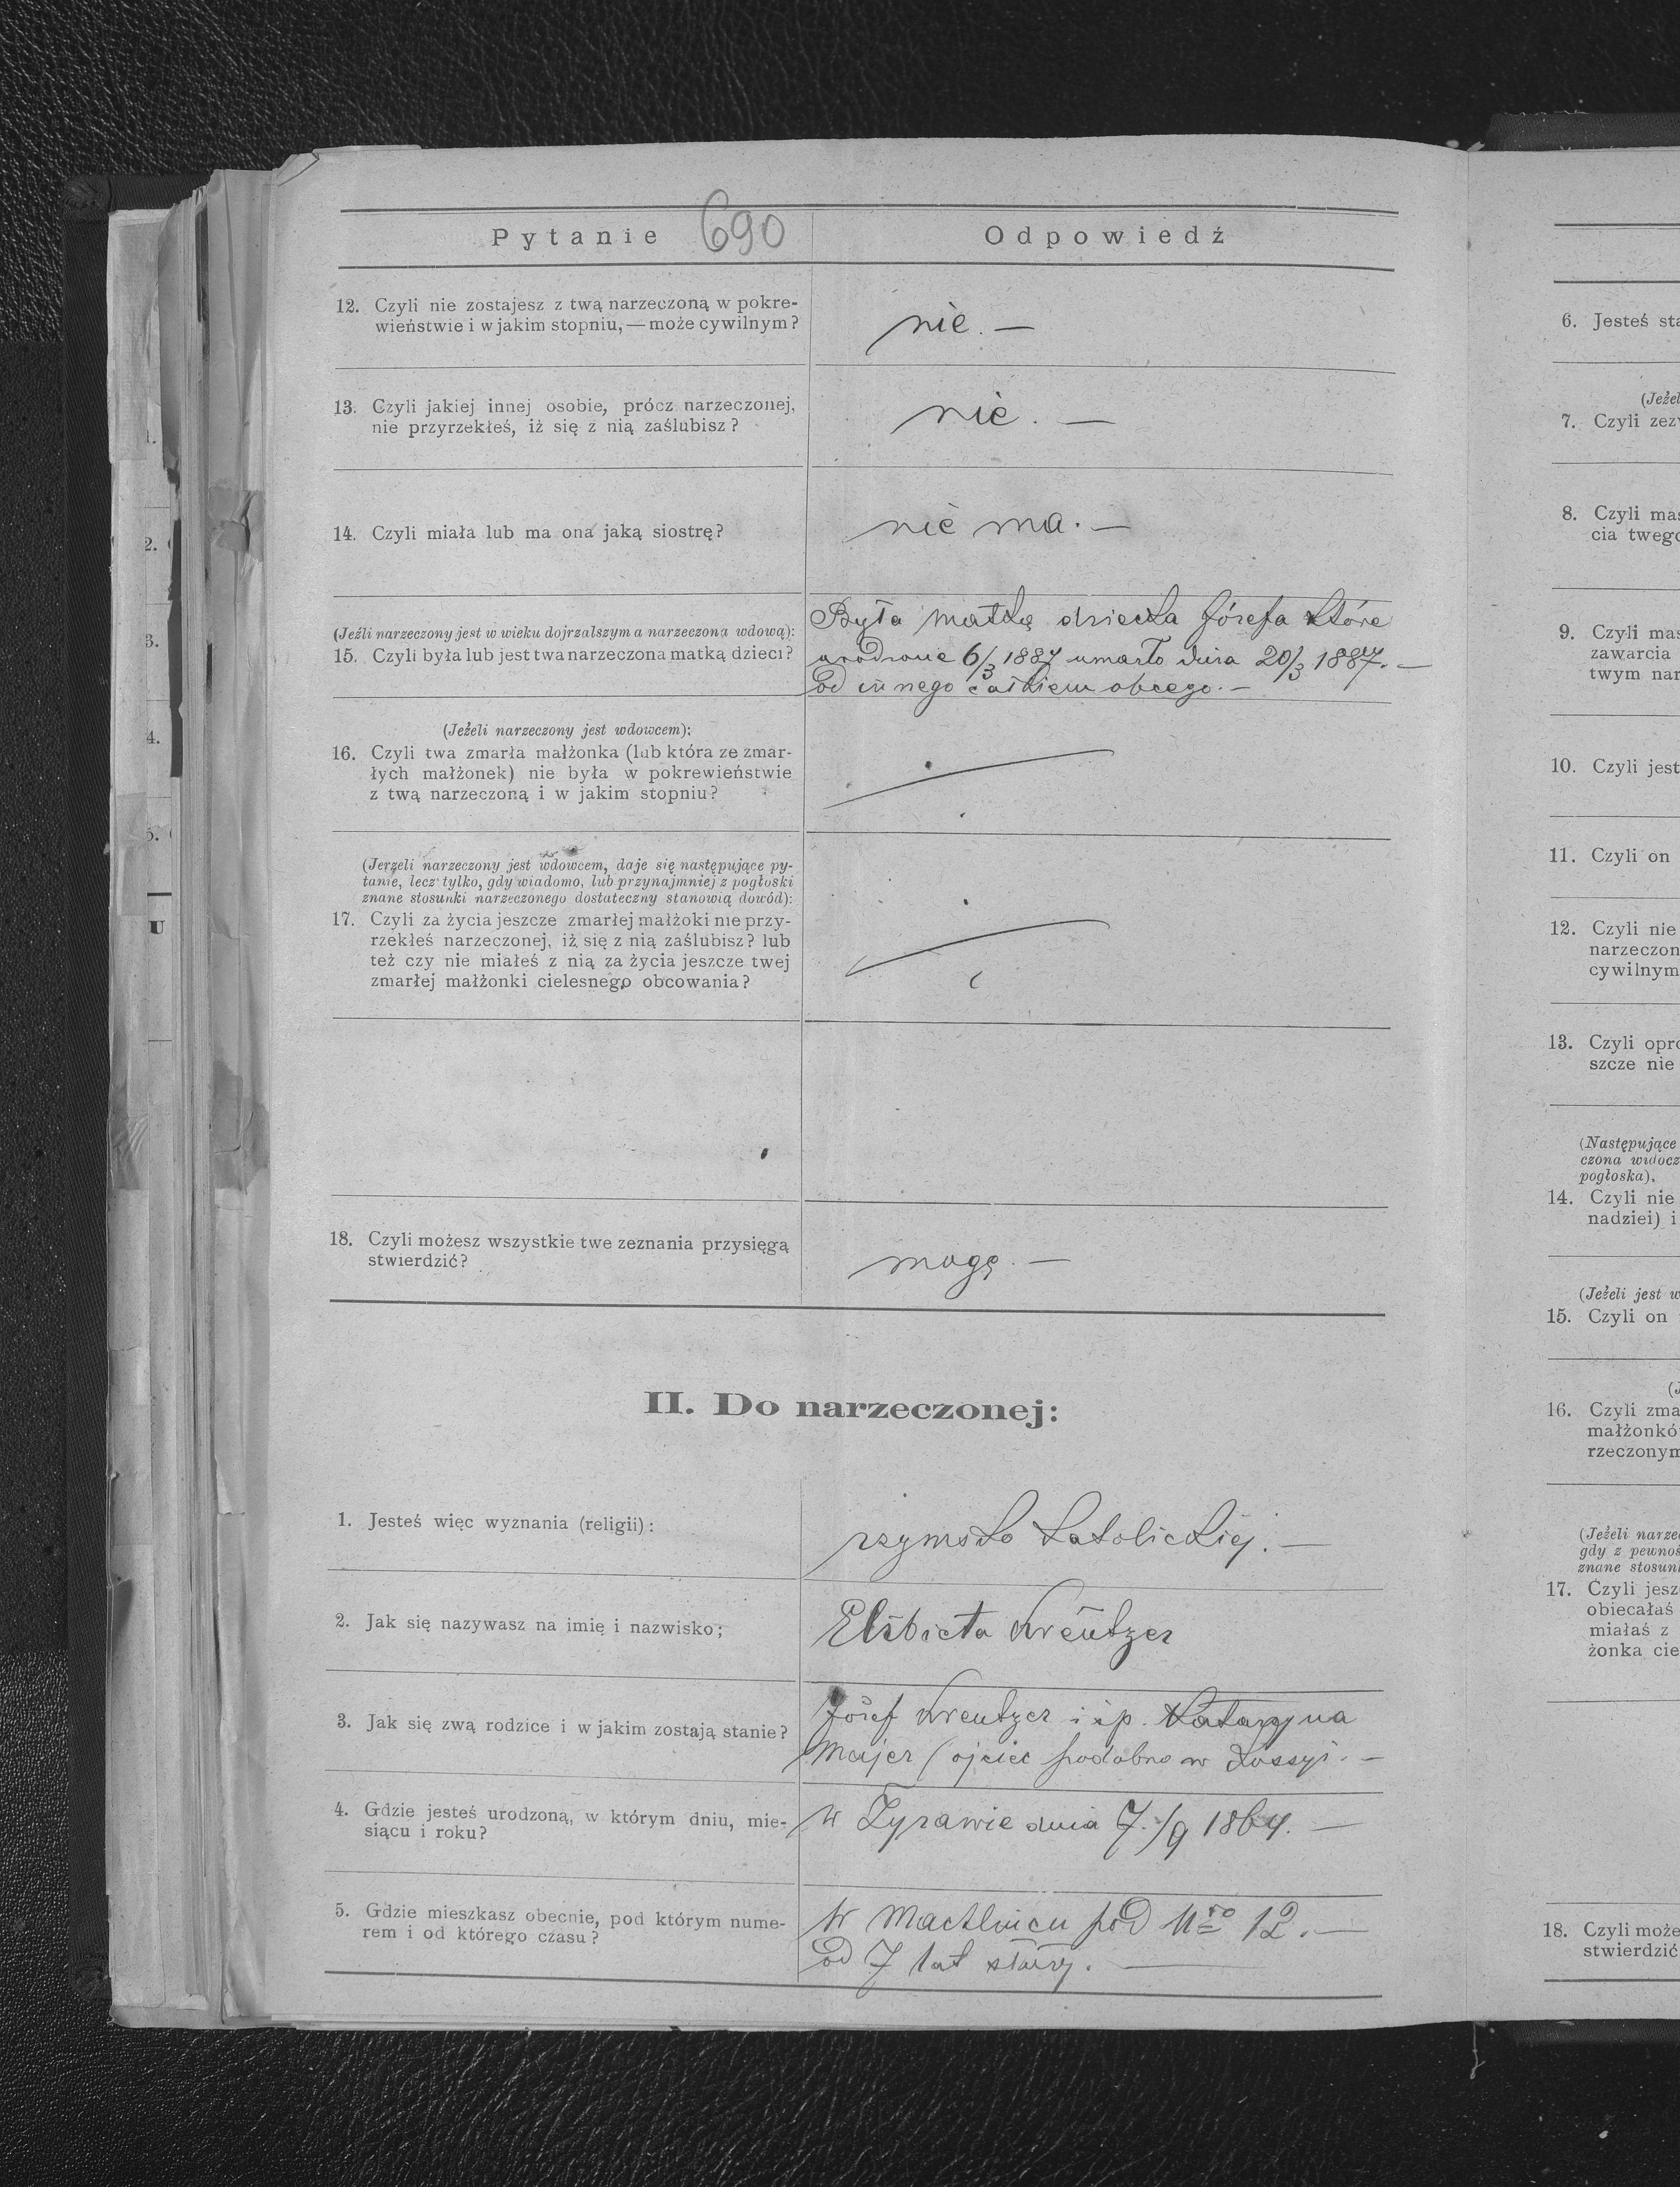 Pytanie 690 Odpowiedź
12. Czyli nie zostajesz z twą narzeczoną w pokre-
wieństwie i w jakim stopniu, — może cywilnym?
nie. —
13. Czyli jakiej innej osobie, prócz narzeczonej,
nie przyrzekłeś, iż się z nią zaślubisz?
nie. —
14. Czyli miała lub ma ona jaką siostrę?
nie ma. —
(Jeźli narzeczony jest w wieku dojrzalszym a narzeczona wdową):
15. Czyli była lub jest twa narzeczona matką dzieci?
Była matką dziecka Józefa które
urodzone 6/3 1887 umarło dnia 20/3 1887. —
od innego całkiem obcego. —
(Jeżeli narzeczony jest wdowcem):
16. Czyli twa zmarła małżonka (lub która ze zmar-
łych małżonek) nie była w pokrewieństwie
z twą narzeczoną i w jakim stopniu?
(Jerzeli narzeczony jest wdowcem, daje się następujące py-
tanie, lecz tylko, gdy wiadomo, lub przynajmniej z pogłoski
znane stosunki narzeczonego dostateczny stanowią dowód):
17. Czyli za życia jeszcze zmarłej małżoki nie przy-
rzekłeś narzeczonej, iż się z nią zaślubisz? lub
też czy nie miałeś z nią za życia jeszcze twej
zmarłej małżonki cielesnego obcowania?
18. Czyli możesz wszystkie twe zeznania przysięgą
stwierdzić?
mogę. —
II. Do narzeczonej:
1. Jesteś więc wyznania (religii):
rzymsko katolickiej. —
2. Jak się nazywasz na imię i nazwisko;
Elżbieta Kreutzer
3. Jak się zwą rodzice i w jakim zostają stanie?
Józef Kreutzer i śp. Katarzyna
Majer (ojciec podobno w Rossyi. —
4. Gdzie jesteś urodzoną, w którym dniu, mie-
siącu i roku?
w Zyrawie dnia 7./9 1864. —
5. Gdzie mieszkasz obecnie, pod którym nume-
rem i od którego czasu?
w Machlińcu pod Nro 12. —
od 7 lat
6. Jesteś
(Jeżel
7. Czyli
8. Czyli
cia
9. Czyli
zawarcia
twym
10. Czyli jest
11. Czyli on
12. Czyli nie
narzeczon
cywilnym
13. Czyli
szcze nie
(Następujące
czona
pogłoska),
14. Czyli nie
nadziei) i
(Jeżeli jest
15. Czyli on
16. Czyli
rzeczonym
(Jeżeli
gdy z
znane
17. Czyli
obiecałaś
miałaś z
żonka
18. Czyli może
stwierdzić
1.
2.
3.
4.
5.
U